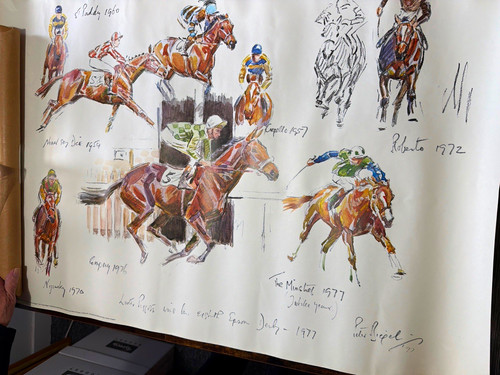 St Paddy 1960
Never Say Die 1954
Crepello 1957
Roberto 1972
Empery 1976
The Minstrel 1977
(Jubilee year)
Nijinsky 1970
Lester Piggott wins his eighth Epsom Derby - 1977